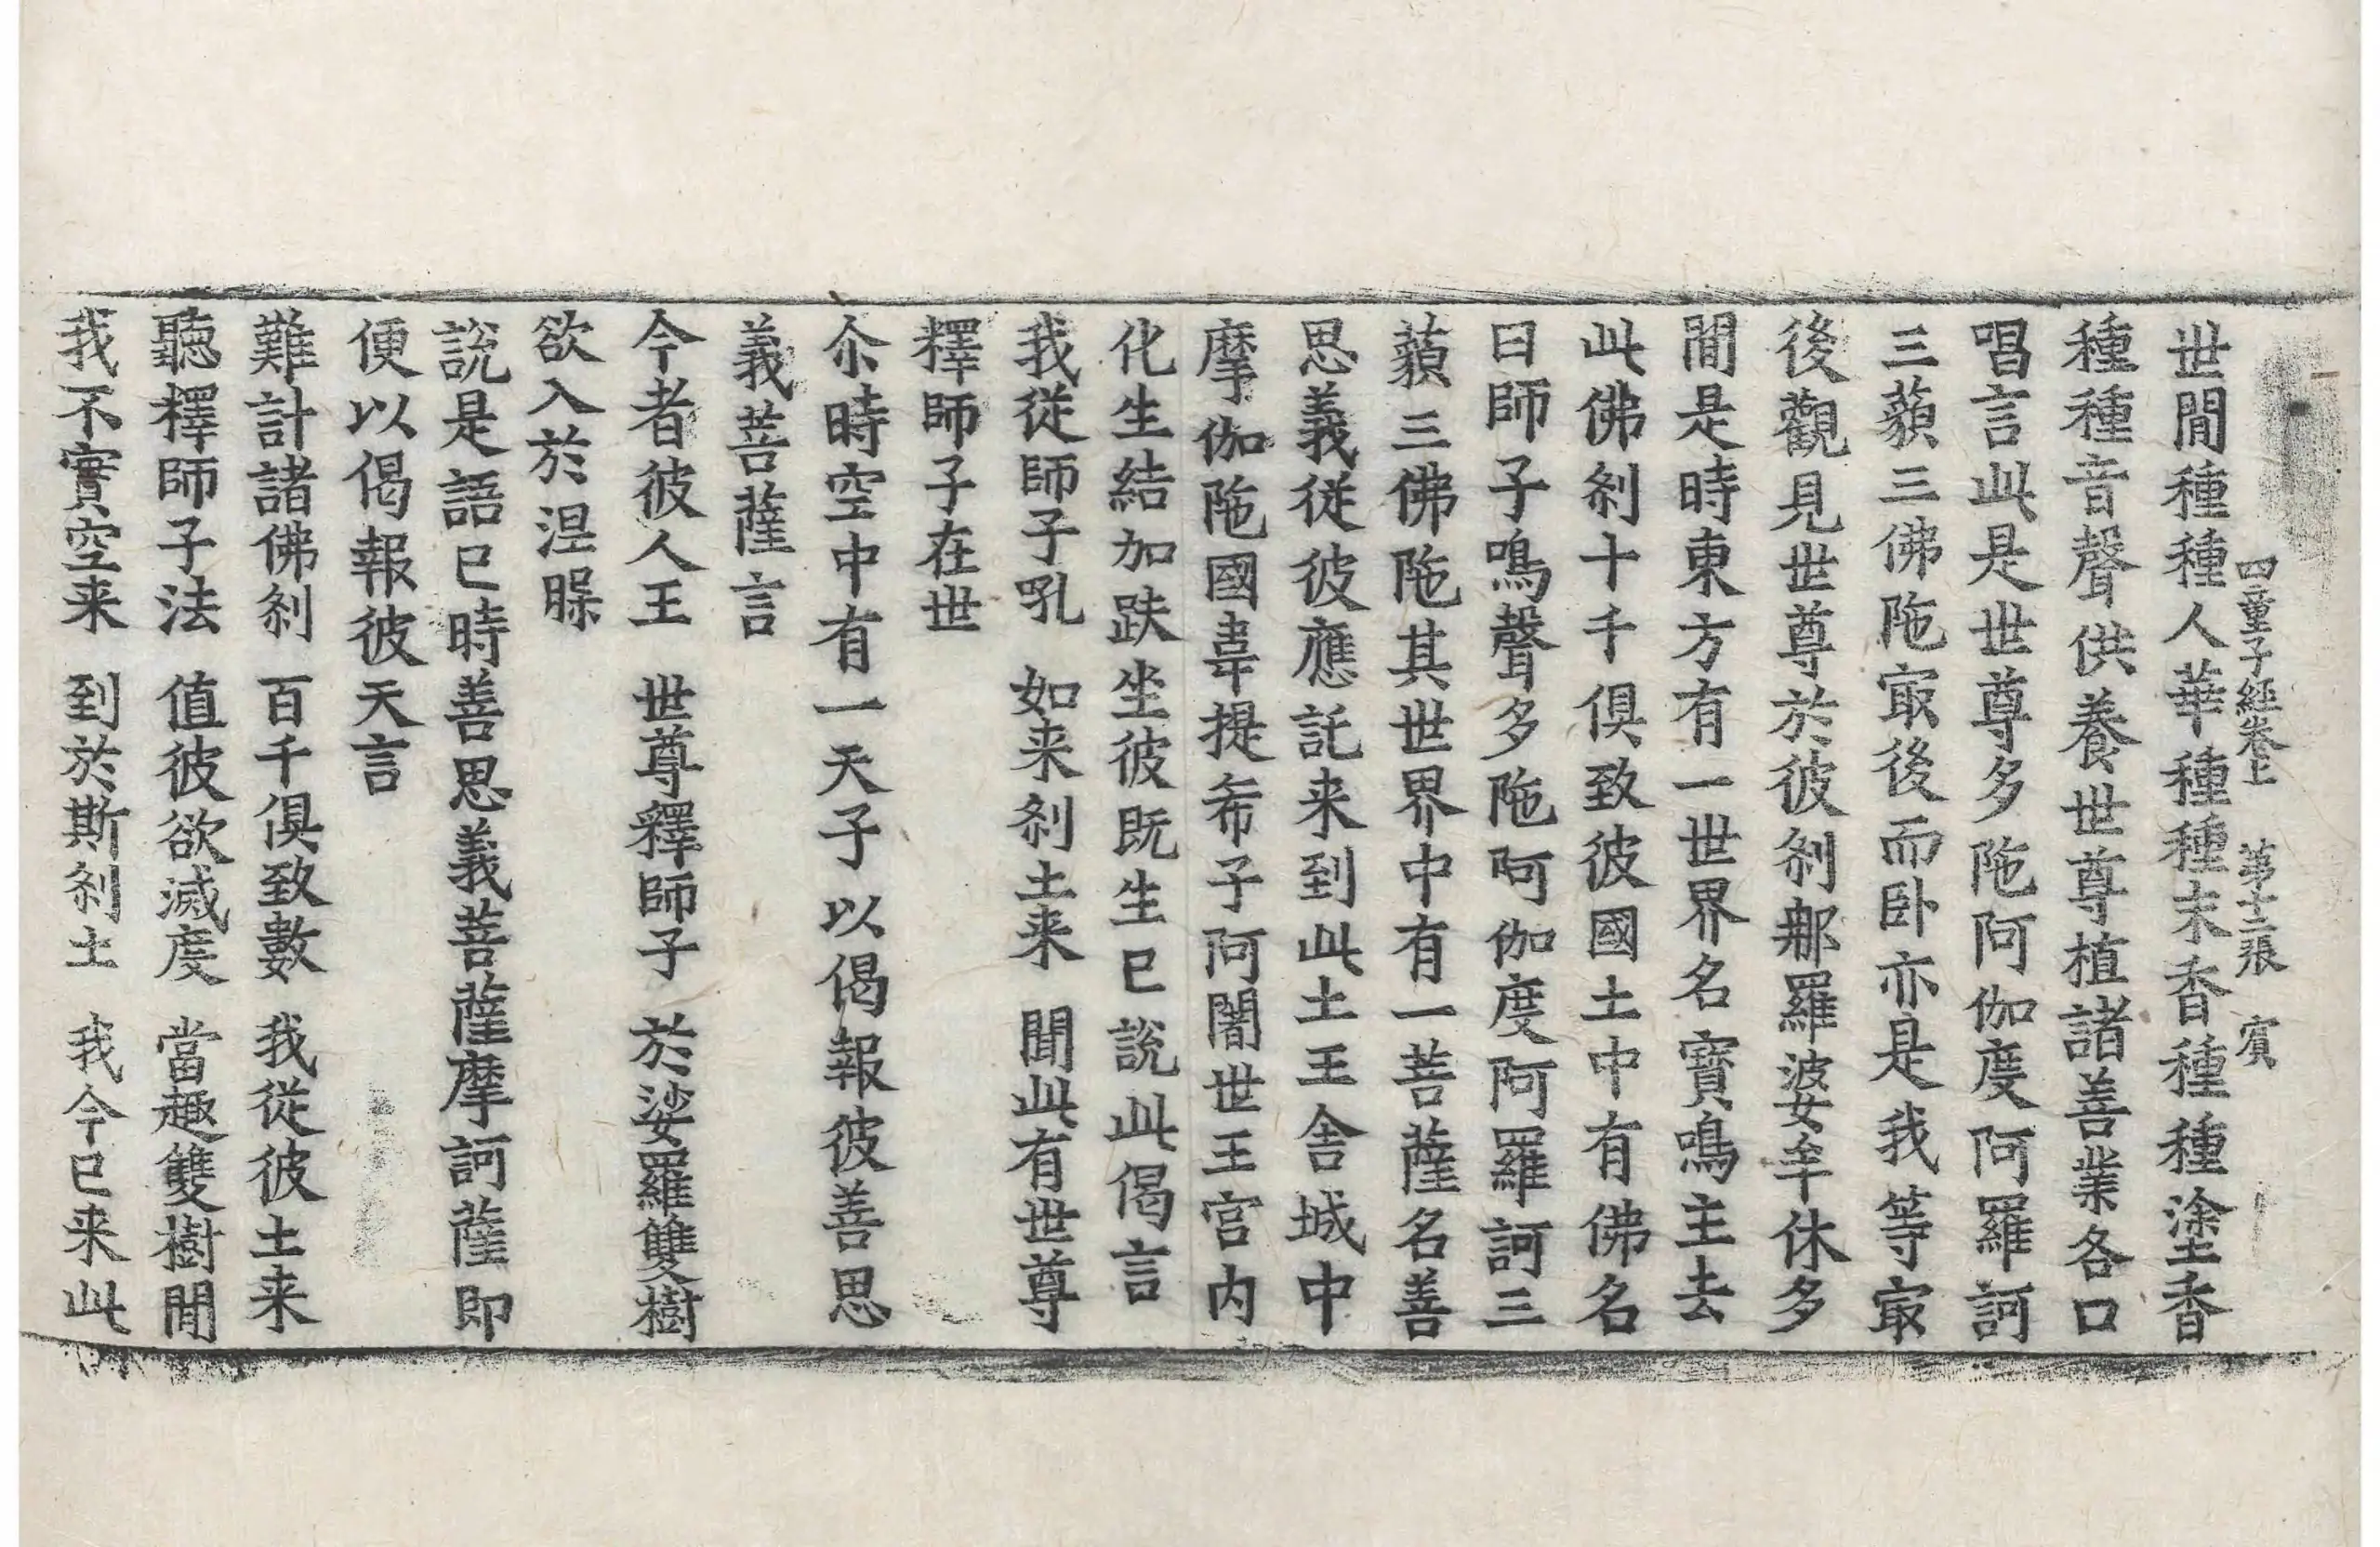 四童子經卷上　第十二張　賓
世間種種人華種種末香種種塗香
種種音聲供養世尊植諸善業各口
唱言此是世尊多陁阿伽度阿羅訶
三藐三佛陁㝡後而卧亦是我等㝡
後觀見世尊於彼刹郍羅婆牟休多
間是時東方有一世界名寶鳴主去
此佛刹十千俱致彼國土中有佛名
曰師子鳴聲多陁阿伽度阿羅訶三
藐三佛陁其世界中有一菩薩名善
思義從彼應託来到此土王舍城中
摩伽陁國韋提希子阿闍世王宫内
化生結加趺坐彼既生已說此偈言
我從師子吼　如来刹土来　聞此有世尊
釋師子在世
尒時空中有一天子以偈報彼善思
義菩薩言
今者彼人王　世尊釋師子　於娑羅雙樹
欲入於涅槃
說是語已時善思義菩薩摩訶薩即
便以偈報彼天言
難計諸佛刹　百千俱致數　我從彼土来
聽釋師子法　值彼欲滅度　當趣雙樹間
我不實空来　到於斯刹土　我今已来此